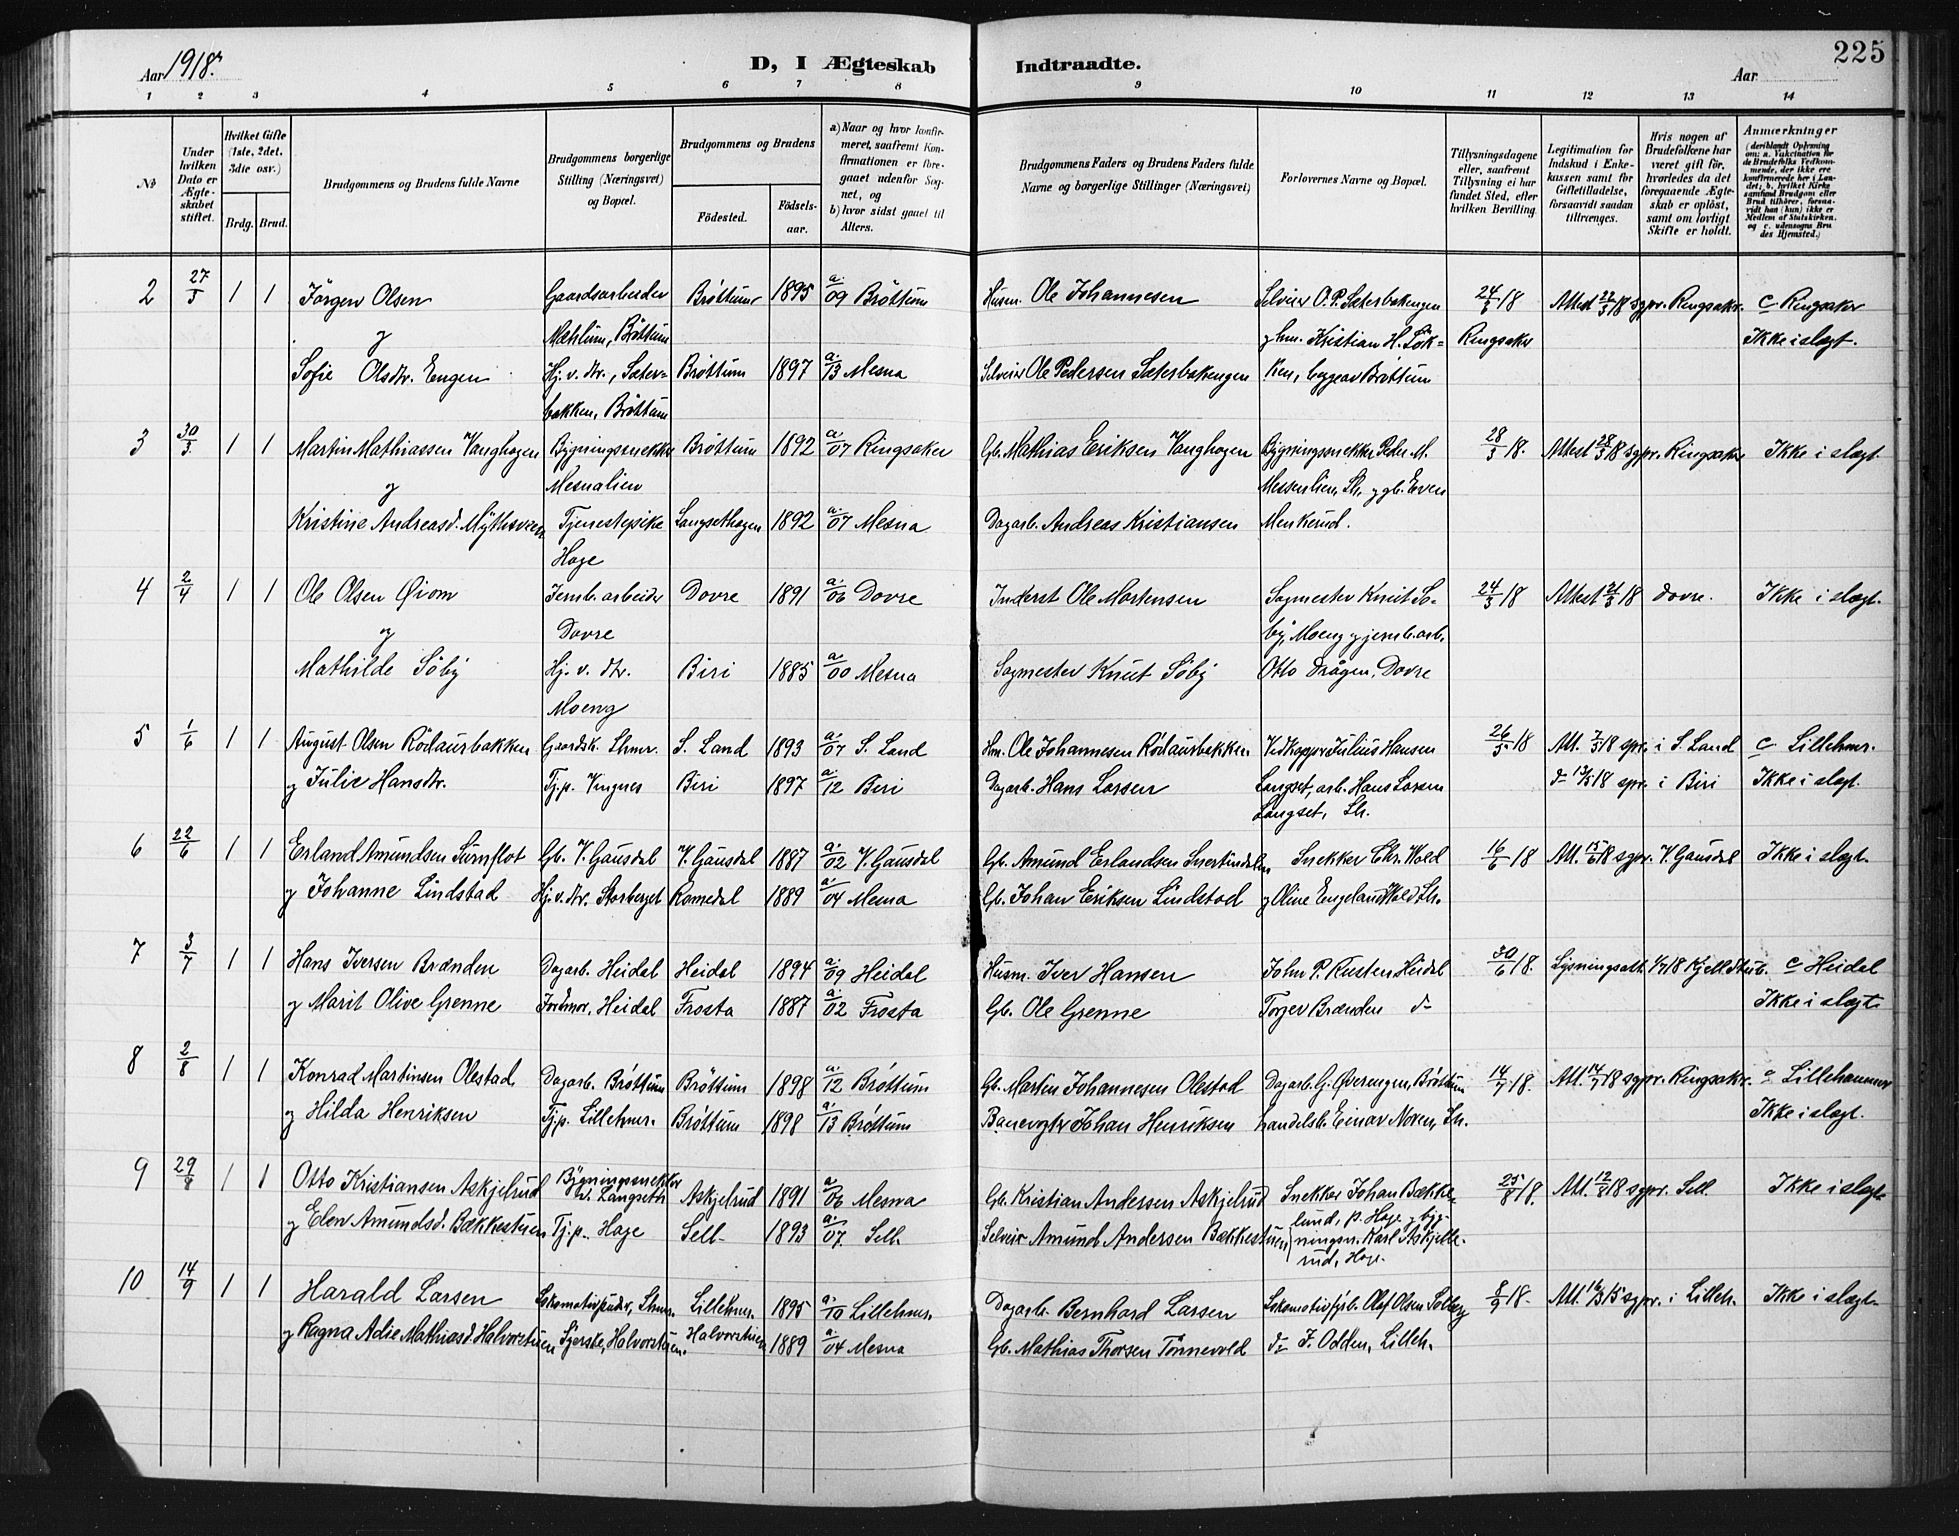 Aar 1918.
D, I Ægteskab Indtraadte.
Aar
225
1 2 3 4 5 6 7 8 9 10 11 12 13 14
No
Under hvilken Dato er Ægteskabet stiftet.
Hvilket Gifte (1ste, 2det, 3die osv.)
Brdg. Brud.
Brudgommens og Brudens fulde Navne
Brudgommens borgerlige Stilling (Næringsvei) og Bopæl.
Brudgommens og Brudens
Födested. Födsels-aar.
a) Naar og hvor konfirmeret, saafremt Konfirmationen er foregaaet udenfor Sognet, og
b) hvor sidst gaaet til Alters.
Brudgommens Faders og Brudens Faders fulde Navne og borgerlige Stillinger (Næringsvei)
Forlovernes Navne og Bopæl.
Tillysningsdagene eller, saafremt Tillysning ei har fundet Sted, efter hvilken Bevilling.
Legitimation for Indskud i Enkekassen samt for Giftetilladelse, forsaavidt saadan tiltrænges.
Hvis nogen af Brudefolkene har været gift för, hvorledes da det foregaaende Ægteskab er oplöst, samt om lovligt Skifte er holdt.
Anmærkninger (deriblandt Oplysning om: a. Vakcination for de Brudefolks Vedkommende, der ikke ere konfirmerede her i Landet; b. hvilket Kirkesamfund Brudgom eller Brud tilhörer, forsaavidt han (hun) ikke er Medlem af Statskirken, og c. udensogns Brudes Hjemsted.)
2 27/3 1 1 Jörgen Olsen Gaardsarbeider Brøttum 1895 a. 09 Bröttum Husm. Ole Johannesen Selveier O. P. Sæterbakengen 24/3 18 Attest 22/3 18 sgpr. Ringsaker. c Ringsaker
og Mæhlum, Bröttum og hm. Kristian H. Lök- Ringsaker Ikke i slægt.
Sofie Olsdtr. Engen Hj. v. dtr., Sæter- Brøttum 1897 a. 13 Mesna Selveier Ole Pedersen Sæterbakengen ken, begge av Bröttum
bakken, Bröttum
3 30/3 1 1 Martin Mathiassen Vanghagen Bygningssnekker Brøttum 1892 a. 07 Ringsaker Gb. Mathias Eriksen Vanghagen Bygningssnekker Peder M. 28/3 18. Attest 28/3 18 sgpr. Ringsaker Ikke i slægt.
og Mesnalien Messenlien, Lh. og gb. Even
Kristine Andreasd. Tjenestepike Langsethagen 1892 a. 07 Mesna Dagarb. Andreas Kristiansen Menkerud.
Hage
4 2/4 1 1 Ole Olsen Öiom Jernb. arbeider Dovre 1891 a. 06 Dovre Inderst Ole Mortensen Sagmester Knut Sö- 24/3 18 Attest 21/3 18 Dovre. Ikke i slægt.
og Dovre by, Moeng og jernb. arb.
Mathilde Söby Hj. v. dtr. Biri 1885 a. 00 Mesna Sagmester Knut Söby Otto Drågen, Dovre
Moeng
5 1/6 1 1 August Olsen Rödaursbakken Gaardsk. Lhmr. S. Land 1893 a. 07 S. Land Hm. Ole Johannesen Rödaursbakken Vedkapper Julius Hansen 26/5 18 Att. 7/5 18 spr. i S. Land c Lillehmr.
og Julie Hansdtr. Tj.p. Vingnes Biri 1897 a. 12 Biri Dagarb. Hans Larsen Langset, arb. Hans Larsen do 13/5 18 spr. i Biri Ikke i slægt.
Langset, Lh.
6 22/6 1 1 Erland Amundsen Surnflot Gb. V. Gausdal V. Gausdal 1887 a. 02 V. Gausdal Gb. Amund Erlandsen Snekker Chr. Wold 16/6 18 Att. 15/6 18 sgpr. V. Gausdal Ikke i slægt.
og Johanne Lindstad Hj. v. dtr. Storberget Romedal 1889 a. 04 Mesna Gb. Johan Eriksen Lindstad og Oline Engeland Wold Lh.
7 3/7 1 1 Hans Iversen Brænden Dagarb. Heidal Heidal 1894 a. 09 Heidal Husm. Iver Hansen John P. Rusten Heidal 30/6 18. Lysningsatt. 1/7 18 Kjell Stub. c Heidal
og Marit Olive Grenne Jordmor, Heidal Frosta 1887 a. 02 Frosta Gb. Ole Grenne Torger Brænden do Ikke i slægt
8 2/8 1 1 Konrad Martinsen Olestad Dagarb. Bröttum Bröttum 1898 a. 12 Bröttum Gb. Martin Johannesen Olestad Dagarb. G. Överengen, Bröttum 14/7 18. Att. 14/7 18 sgpr. Ringsaker. c Lillehammer
og Hilda Henriksen Tj.p. Lillehmr. Bröttum 1898 a. 13 Bröttum Banevogter Johan Henriksen handelsb. Einar Noren, Lh. Ikke i slægt.
9 29/8 1 1 Otto Kristiansen Askjelrud Bygningssnekker v. Langseth Askjelrud 1891 a. 06 Mesna Gb. Kristian Andersen Askjelrud Snekker Johan Bække- 25/8 18. Att. 12/8 18 sgpr. Sell. Ikke i slægt
og Elen Amundsd. Bækkestuen Tj.p. Hage Sell 1893 a. 07. Sell. Selveier Amund Andersen Bækkestuen lund, p. Hage og byg-
ningssn. Karl Askjelle-
rud, Hage.
10 14/9 1 1 Harald Larsen Lokomotivpudser, Lhmr. Lillehmr. 1895 a. 10 Lillehmr. Dagarb. Bernhard Larsen Lokomotivfyrb. Olaf Olsen Solberg 8/9 18. Att. 16/3 15 sgpr. i Lilleh. Ikke i slægt
og Ragna Adie Mathiasd. Halvorstuen Syerske, Halvorstuen. Halvorstuen 1889 a. 04 Mesna Gb. Mathias Thorsen Tonnevold do F. Odden, Lilleh.